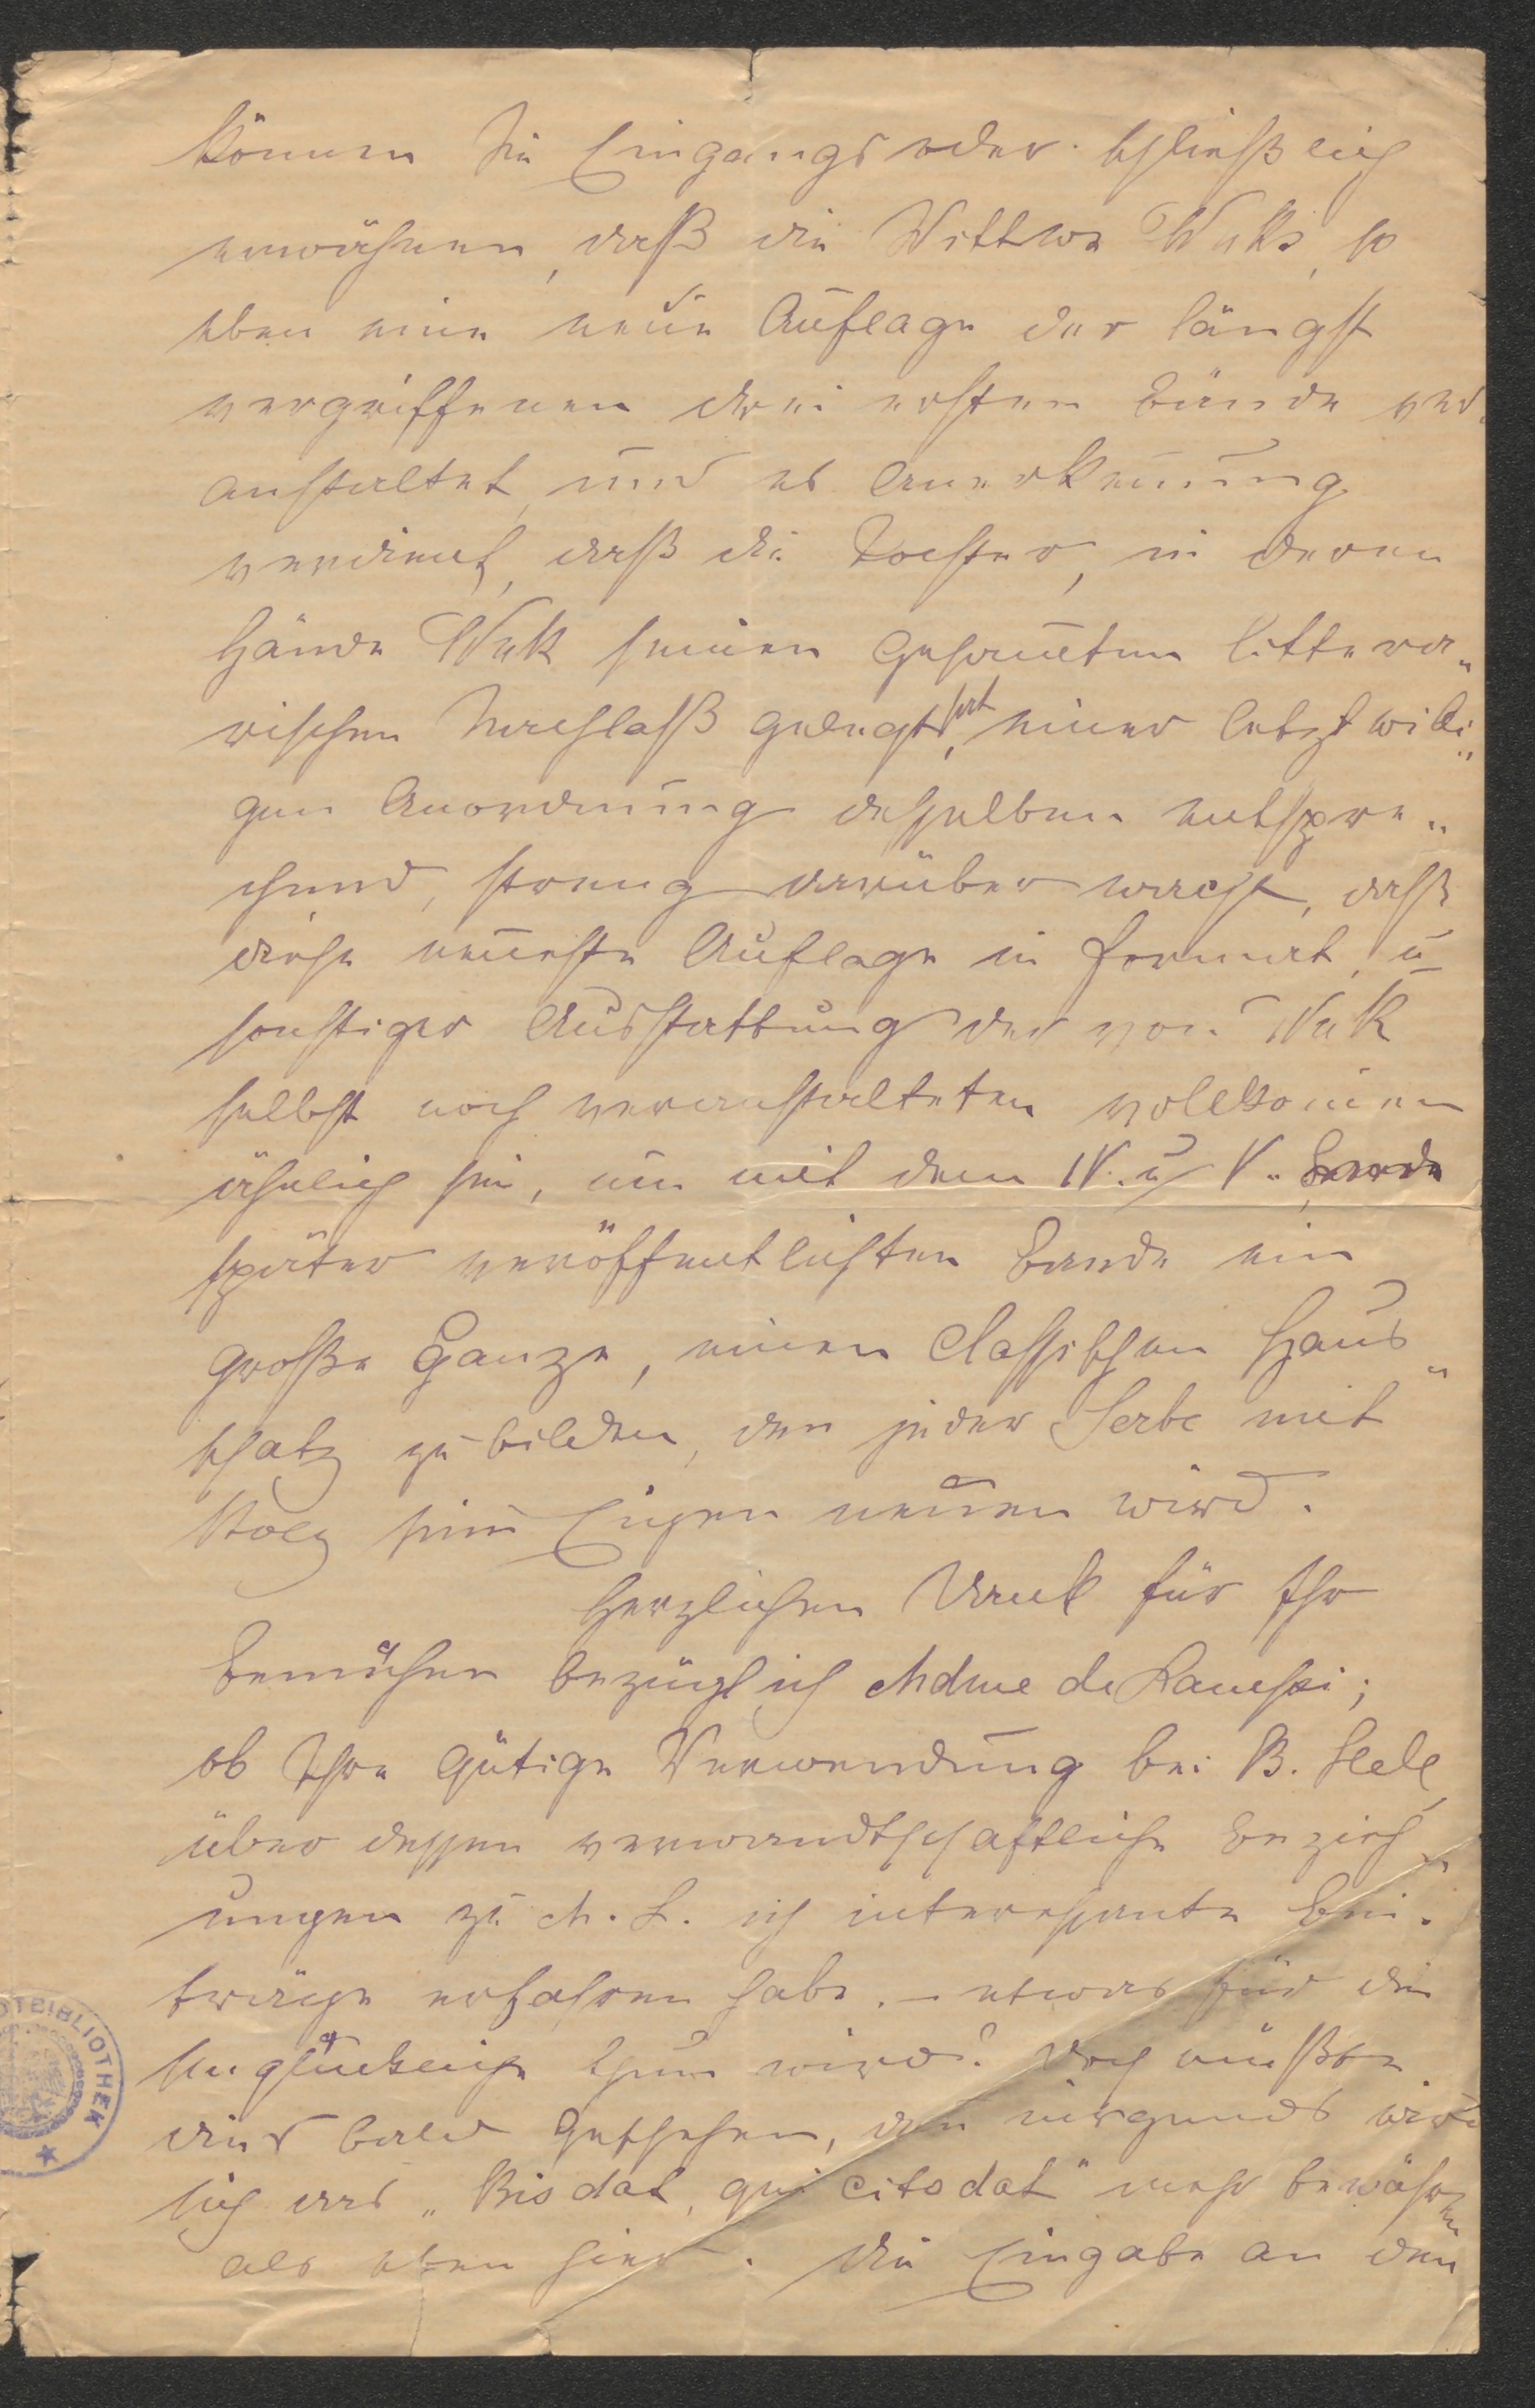 können Sie Eingangs oder schließlich
erwähnen, daß die Wittwe Vuks, so
eben eine neue Auflage der längst
vergriffenen drei ersten Bände ver-
anstaltet, und es Anerkennung
verdient, daß die Tochter, in deren
Hände Vuk seinen gesam̄ten littera„
rischen Nachlaß gelegt hat, einer letztwilli„
gen Anordnung desselben entspre„
chend, streng darüber wacht, daß
diese neueste Auflage in Format, u
sonstiger Ausstattung der von Vuk
selbst noch veranstalteten vollkom̄en
ähnlich sei, um mit dem IV. u V. Bande
später veröffentlichten Bande ein
große Ganze, einen classischen Haus„
schatz zu bilden, den jeder Serbe mit
Stolz sein Eigen nen̄en wird.
Herzlichen Dank für Ihr
Bemühen bezüglich Mdme de
ob Ihre gütige Verwendung bei B.
über dessen verwandtschaftliche Bezieh„
ungen zu M. L. ich interessante Bei-
träge erfahren habe. – etwas für die
Unglückliche thun wird? Doch müßte
dies bald geschehen, den̄ nirgends wird
sich das „Bis dat, qui cito dat" mehr bewähren
als eben hier. Die Eingabe an den